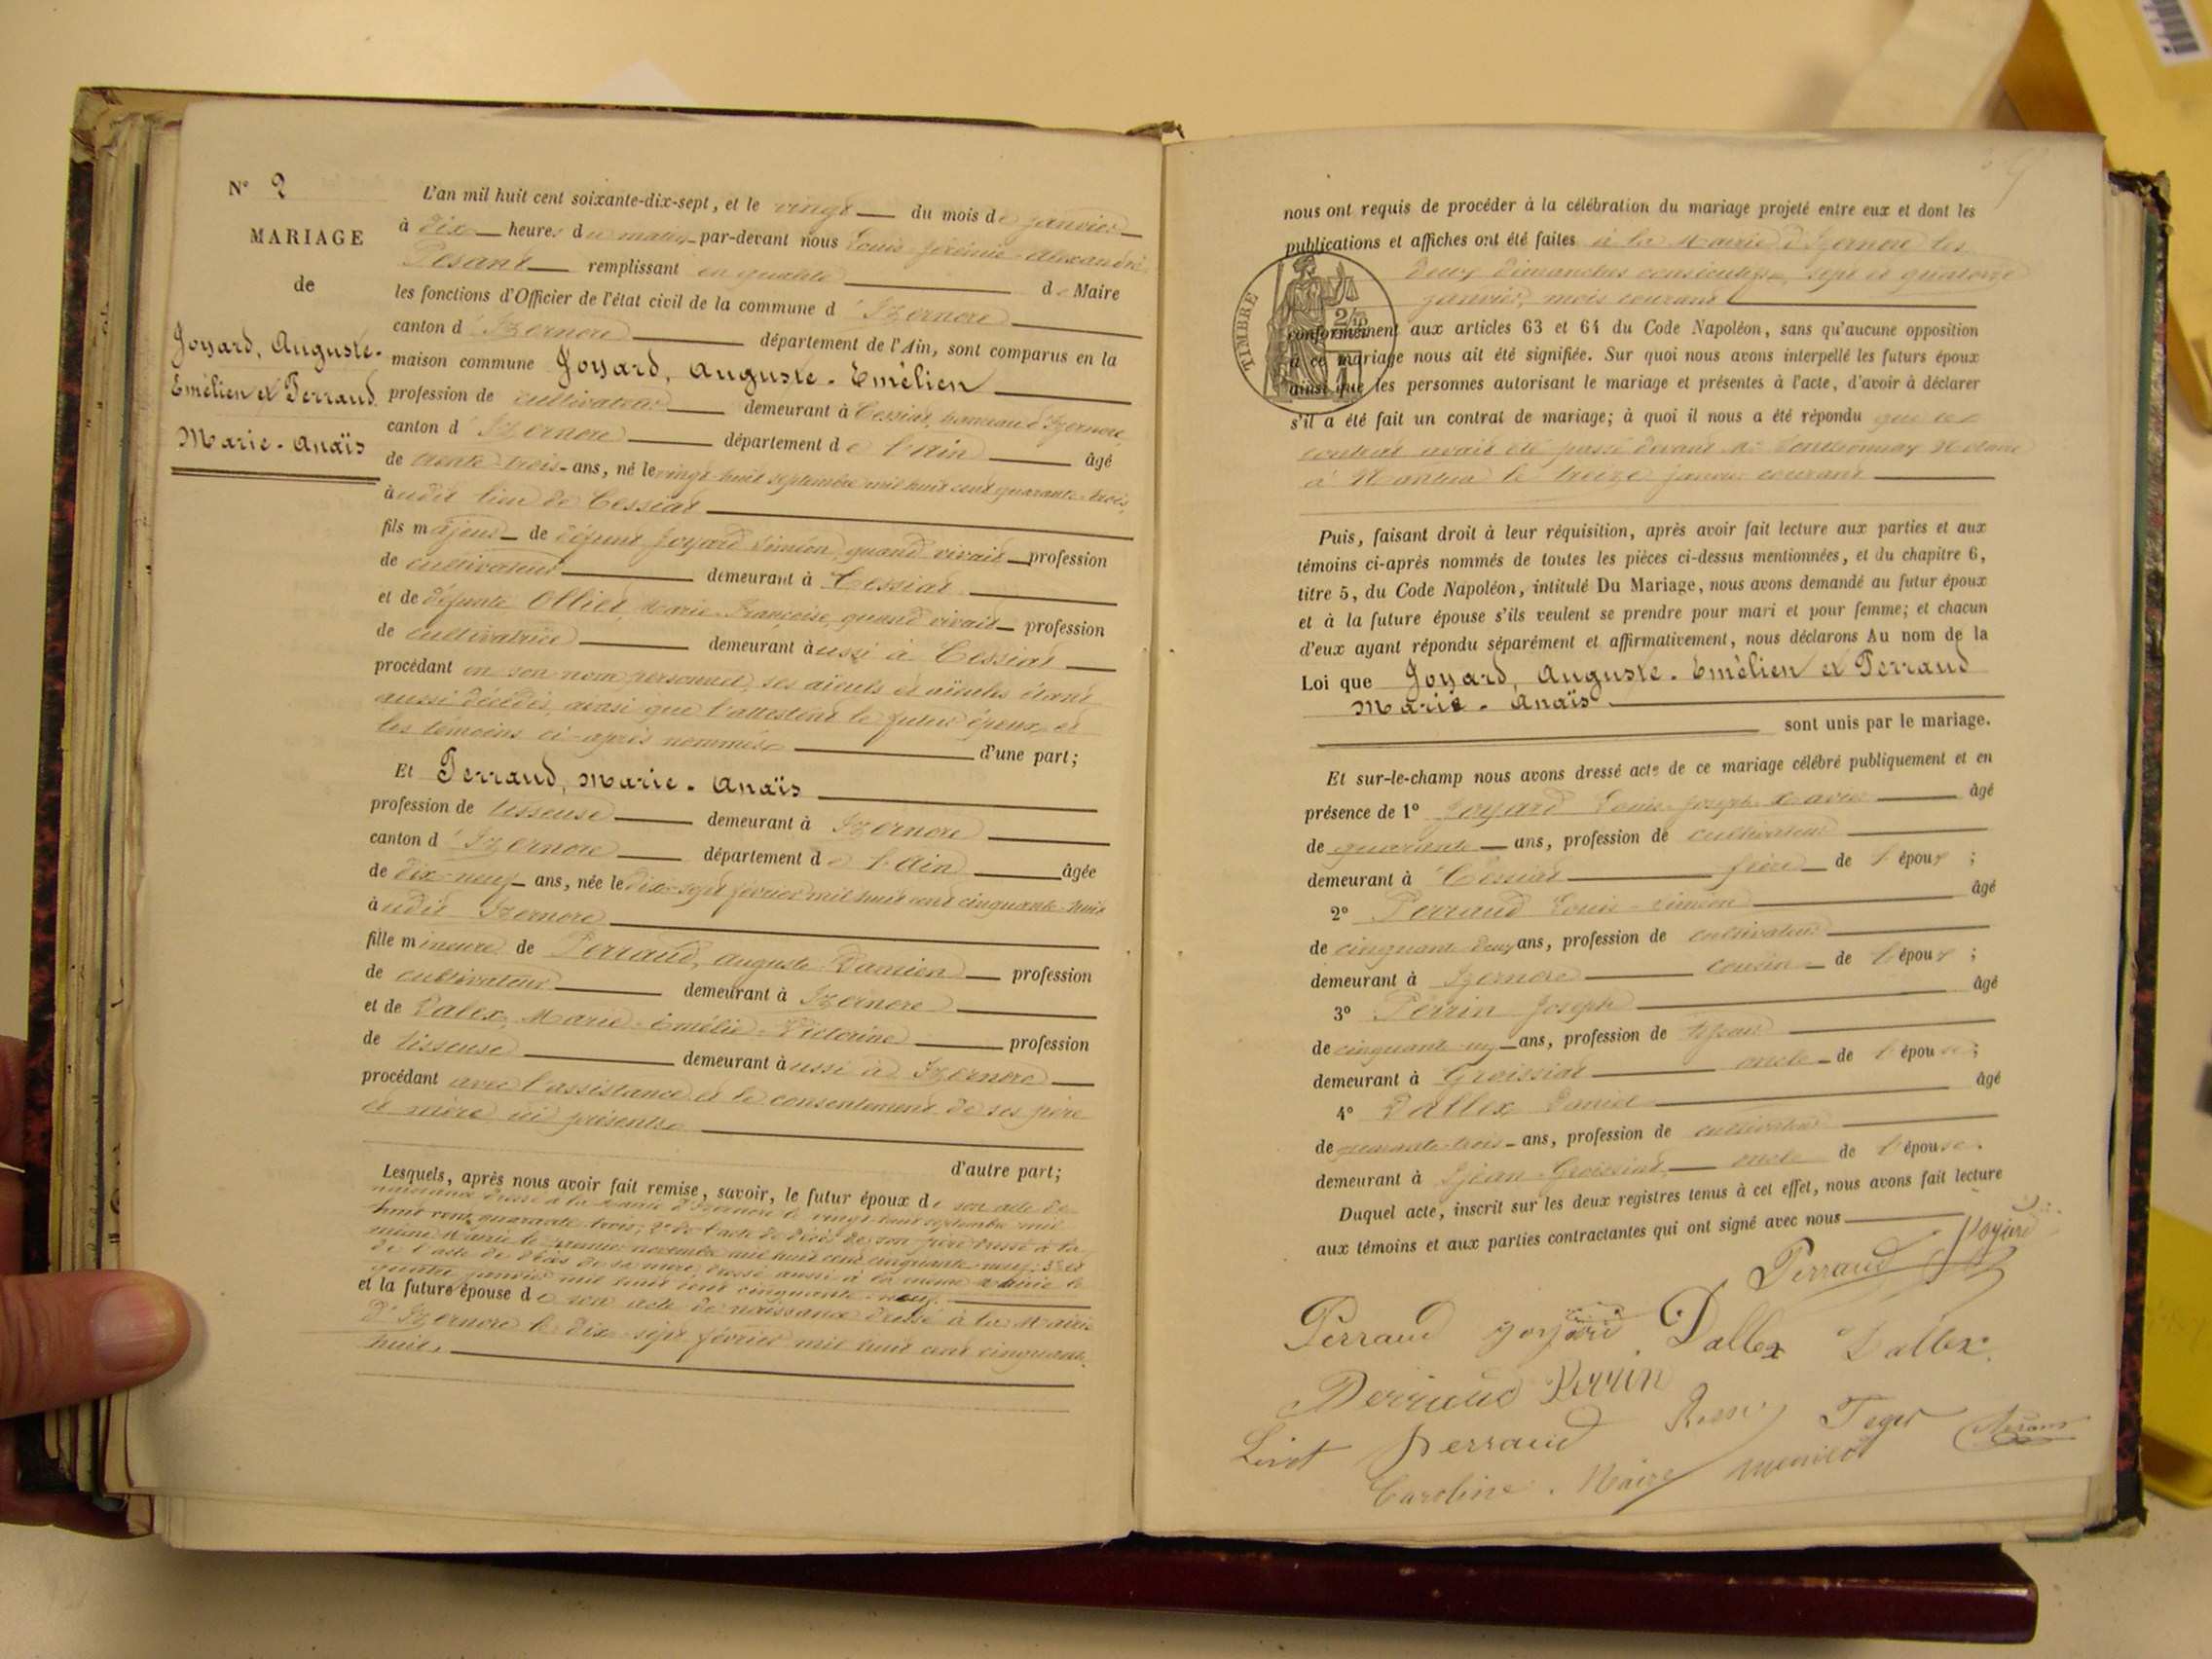 N° 2
MARIAGE
de
Joyard, Auguste-
Emélien et Perraud
Marie-Anaïs
L'an mil huit cent soixante-dix-sept, et le vingt du mois de janvier
à dix heures du matin par-devant nous Louis Jérémie Alexandre
Pesant remplissant en qualité de Maire
les fonctions d'Officier de l'état civil de la commune d'Izernore
canton d'Izernore département de l'Ain, sont comparus en la
maison commune Joyard, Auguste-Emélien
profession de cultivateur demeurant à Cessiat, hameau d'Izernore,
canton d'Izernore département de l'Ain âgé
de trente-trois ans, né le vingt-huit septembre mil huit cent quarante-trois,
audit lieu de Cessiat
fils majeur de défunt Joyard Siméon, quand vivait profession
de cultivateur demeurant à Cessiat
et de défunte Olliet, Marie-Françoise, quand vivait profession
de cultivatrice demeurant aussi à Cessiat
procédant en son nom personnel, ses aïeuls et aïeules étant
aussi décédés, ainsi que l'attestent le futur époux et
les témoins ci-après nommés d'une part;
Et Perraud, Marie-Anaïs
profession de tisseuse demeurant à Izernore
canton d'Izernore département de l'Ain âgée
de dix-neuf ans, née le dix-sept février mil huit cent cinquante-huit
audit Izernore
fille mineure de Perraud, Auguste Damien profession
de cultivateur demeurant à Izernore
et de Dalex, Marie-Emélie-Victorine profession
de tisseuse demeurant aussi à Izernore
procédant avec l'assistance et le consentement de ses père
et mère ici présents
d'autre part;
Lesquels, après nous avoir fait remise, savoir, le futur époux de son acte de
naissance dressé à la Mairie d'Izernore le vingt-huit septembre mil
huit cent quarante trois; 2° de l'acte de décès de son père dressé à la
même Mairie le premier novembre mil huit cent cinquante-neuf; 3° et
de l'acte de décès de sa mère, dressé aussi à la même Mairie le
quatre janvier mil huit cent cinquante-neuf.
et la future épouse de son acte de naissance dressé à la Mairie
d'Izernore le dix-sept février mil huit cent cinquante-
huit,
nous ont requis de procéder à la célébration du mariage projeté entre eux et dont les
publications et affiches ont été faites à la Mairie d'Izernore les
deux dimanches consécutifs, sept et quatorze
janvier, mois courant
TIMBRE
conformément aux articles 63 et 64 du Code Napoléon, sans qu'aucune opposition
à ce mariage nous ait été signifiée. Sur quoi nous avons interpellé les futurs époux
ainsi que les personnes autorisant le mariage et présentes à l'acte, d'avoir à déclarer
s'il a été fait un contrat de mariage; à quoi il nous a été répondu que ce
contrat avait été passé devant Me Notaire
à Nantua le treize janvier courant
Puis, faisant droit à leur réquisition, après avoir fait lecture aux parties et aux
témoins ci-après nommés de toutes les pièces ci-dessus mentionnées, et du chapitre 6,
titre 5, du Code Napoléon, intitulé Du Mariage, nous avons demandé au futur époux
et à la future épouse s'ils veulent se prendre pour mari et pour femme; et chacun
d'eux ayant répondu séparément et affirmativement, nous déclarons Au nom de la
Loi que Joyard, Auguste-Emélien et Perraud
Marie-Anaïs
sont unis par le mariage.
Et sur-le-champ nous avons dressé acte de ce mariage célébré publiquement et en
présence de 1° Joyard Louis-Joseph-Xavier âgé
de quarante ans, profession de cultivateur
demeurant à Cessiat frère de l'époux;
2° Perraud Louis-Siméon âgé
de cinquante-deux ans, profession de cultivateur
demeurant à Izernore cousin de l'époux;
3° Perrin Joseph âgé
de cinquante-un ans, profession de
demeurant à Groissiat oncle de l'épouse;
4° Dallex Daniel âgé
de quarante-trois ans, profession de cultivateur
demeurant à Groissiat oncle de l'épouse.
Duquel acte, inscrit sur les deux registres tenus à cet effet, nous avons fait lecture
aux témoins et aux parties contractantes qui ont signé avec nous
Perraud Joyard
Perraud Joyard Dallex Dallex
Perraud Perrin
Livet Perraud Teger Pesant
Caroline